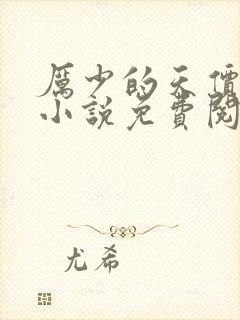 厲少的天價
小說免費閱
尤希